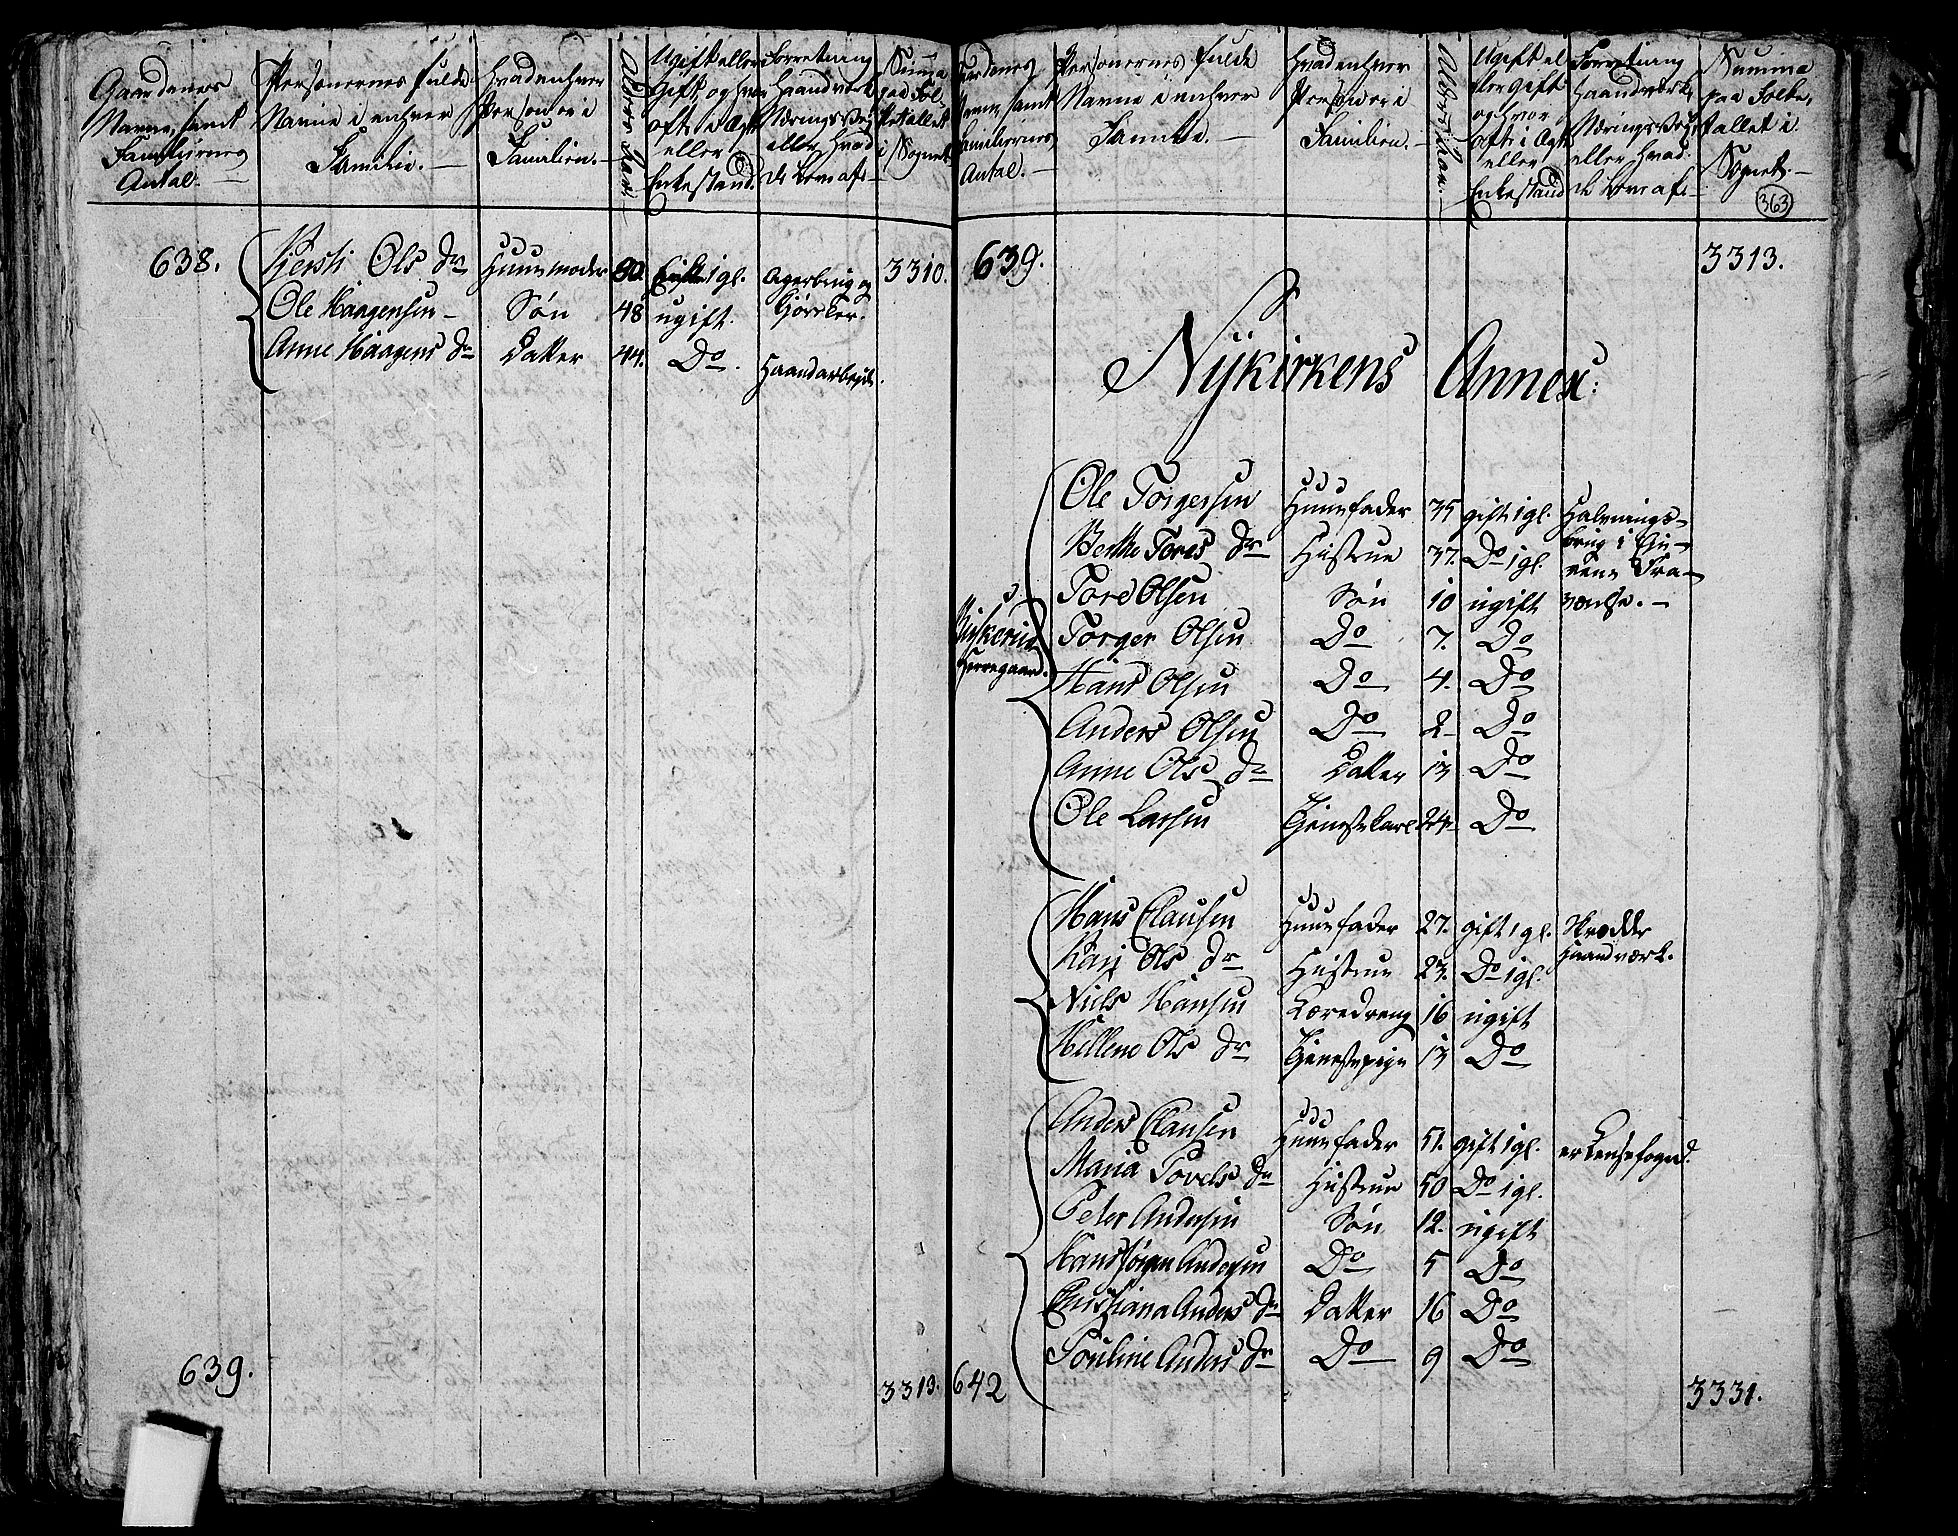 Gaardenes
Navne, samt
Familiernes
Antal. —
Personernes fulde
Navne i enhver
Familie. —
Hvad enhver
Person er i
Familien. —
Alders Aar.
Ugift eller
Gift og hvor
ofte i Ægte
eller
Enkestand.
Forretning
Haandværk
Næringsvej
eller hvad
de leve af —
Summa
paa Fol-
ketallet
i Sognet
638.
Kjersti Ols Dr Huusmoder 80. 1 gl. Agerbrug og 3310.
Ole Haagensen — Søn 48 ugift.
Anne Haagens Dr Datter 44. Do. Haandarbejde.
639.
3313.
Gaardenes
Navne, samt
Familiernes
Antal. —
Personernes fulde
Navne i enhver
Familie. —
Hvad enhver
Person er i
Familien. —
Alders Aar. —
Ugift el-
ler Gift
og hvor
ofte i Ægte
eller
Enkestand
Forretning
Haandværk,
Næringsvej
eller hvad
de leve af —
Summa
paa Folke-
tallet i
Sognet. —
363
639. 3313.
Nykirkens Annex:
Buskerud
Herregaard.
Ole Torgersen Huusfader 35 gift 1 gl. Halvnings-
Berthe Tores Dr Hustrue 37. Do 1 gl. brug i Eje-
rens Fra-
Tore Olsen Søn 10 ugift værelse. —
Torger Olsen Do 7. Do
Hans Olsen Do 4. Do
Anders Olsen Do 2 Do
Anne Ols Dr Datter 13 Do
Ole Larsen Tjenestekarl 24 Do
Hans Clausen Huusfader 27. gift 1 gl. Skrædder
Kari Ols Dr Hustrue 23. Do 1 gl. Haandværk.
Niels Hansen Læredreng 16 ugift
Hellene Ols Dr Tjenestepige 13 Do
Anders Clausen Huusfader 51. gift 1 gl. er Lensefoged.
Maria Povels Dr Hustrue 50 Do 1 gl.
Peter Andersen Søn 12. ugift
Hans Jørgen Andersen Do 5 Do
Christiana Anders Dr Datter 16 Do
Pouline Anders Dr Do 9 Do
642
3331.